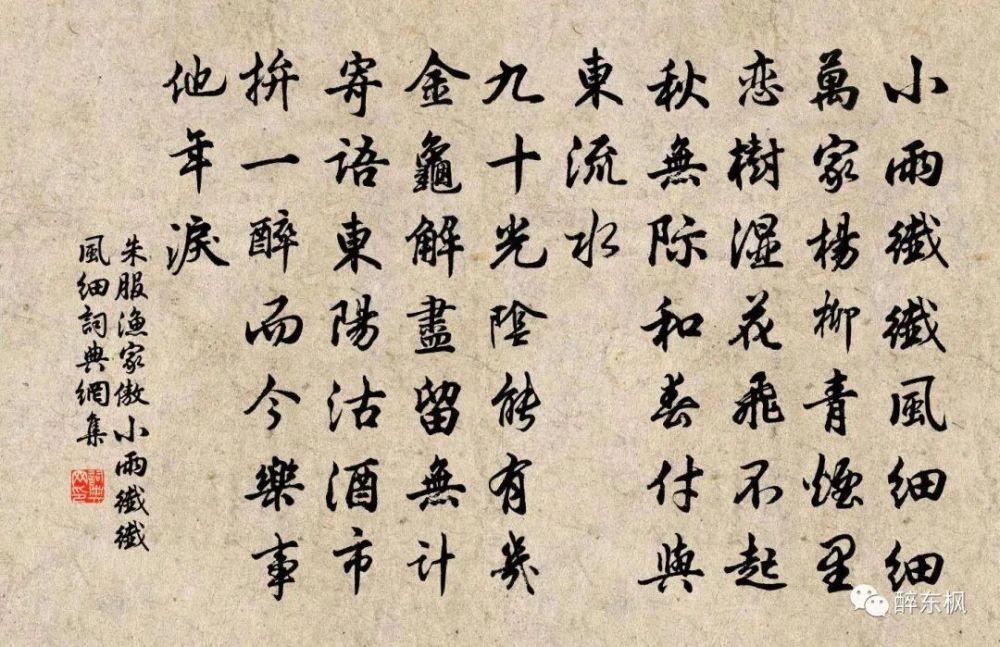 小雨纖纖風細細
萬家楊柳青煙里
恋樹湿花飛不起
秋無际和春付與
東流水
九十光陰能有幾
金龜解盡留無計
寄語東陽沽酒市
拚一醉而今樂事
他年淚
朱服漁家傲小雨纖纖
風細詞典網集
醉东枫